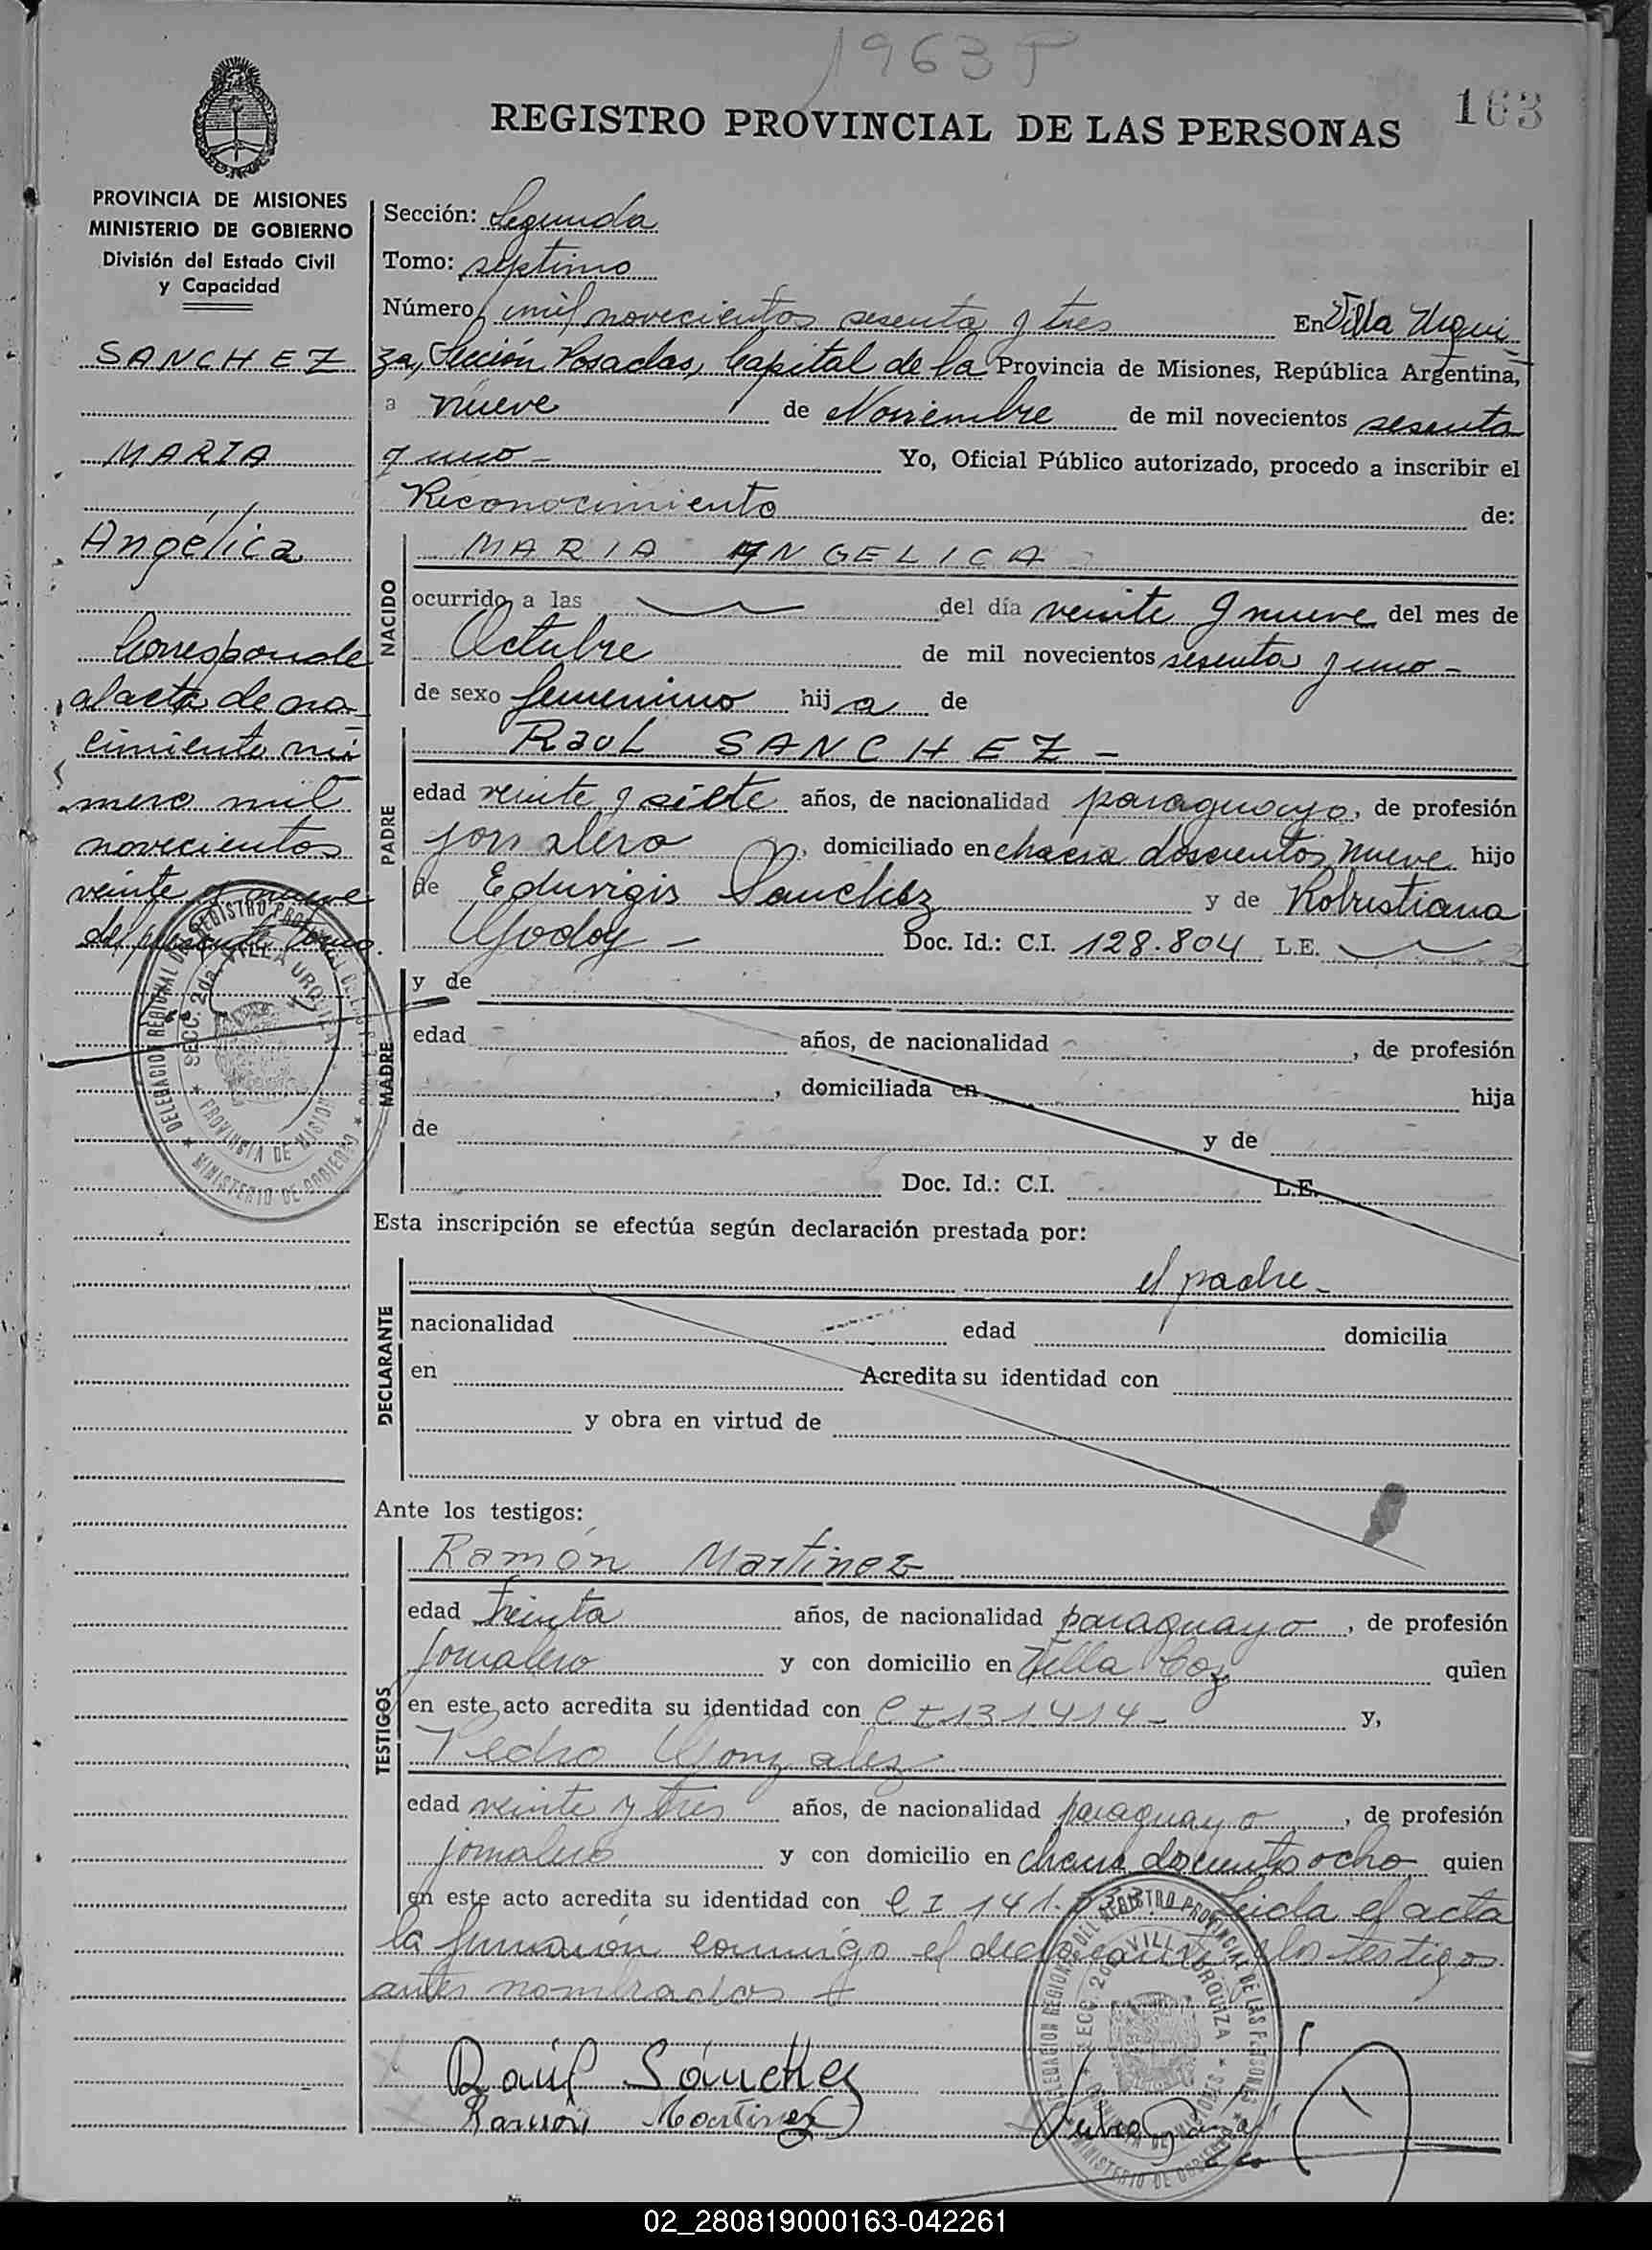 1963 T
163
REGISTRO PROVINCIAL DE LAS PERSONAS
PROVINCIA DE MISIONES
MINISTERIO DE GOBIERNO
División del Estado Civil
y Capacidad
SANCHEZ
MARIA
Angélica
Corresponde
al acta de na-
cimiento nú
mero mil
novecientos
veinte y nueve
del presente tomo.
DELEGACION REGIONAL DEL REGISTRO PROVINCIAL DE LAS PERSONAS
SECC. 2da. VILLA URQUIZA
PROVINCIA DE MISIONES
MINISTERIO DE GOBIERNO
Sección: Segunda
Tomo: septimo
Número mil novecientos sesenta y tres En Villa Urqui-
za, Sección Posadas, Capital de la Provincia de Misiones, República Argentina,
a nueve de Noviembre de mil novecientos sesenta
y uno - Yo, Oficial Público autorizado, procedo a inscribir el
Reconocimiento de:
NACIDO
MARIA ANGELICA
ocurrido a las del día veinte y nueve del mes de
Octubre de mil novecientos sesenta y uno -
de sexo femenino hija de
PADRE
Raul SANCHEZ -
edad veinte y siete años, de nacionalidad paraguayo, de profesión
jornalero, domiciliado en chacra doscientos nueve hijo
de Eduvigis Sanchez y de Robustiana
Godoy - Doc. Id.: C.I. 128.804 L.E.
MADRE
y de
edad años, de nacionalidad , de profesión
, domiciliada en hija
de y de
Doc. Id.: C.I. L.E.
Esta inscripción se efectúa según declaración prestada por:
DECLARANTE
el padre -
nacionalidad edad domicilia
en Acredita su identidad con
y obra en virtud de
Ante los testigos:
TESTIGOS
Ramón Martinez
edad treinta años, de nacionalidad paraguayo, de profesión
jornalero y con domicilio en Villa Coz quien
en este acto acredita su identidad con C I 131.414 - y,
Pedro Gonzalez
edad veinte y tres años, de nacionalidad paraguayo, de profesión
jornalero y con domicilio en chacra doscientos ocho quien
en este acto acredita su identidad con C I 141. Leida el acta
la firmaron conmigo el declarante y los testigos
antes nombrados
DELEGACION REGIONAL DEL REGISTRO PROVINCIAL DE LAS PERSONAS
SECC. 2da. VILLA URQUIZA
PROVINCIA DE MISIONES
MINISTERIO DE GOBIERNO
Raúl Sánchez
Ramón Martinez
02_280819000163-042261